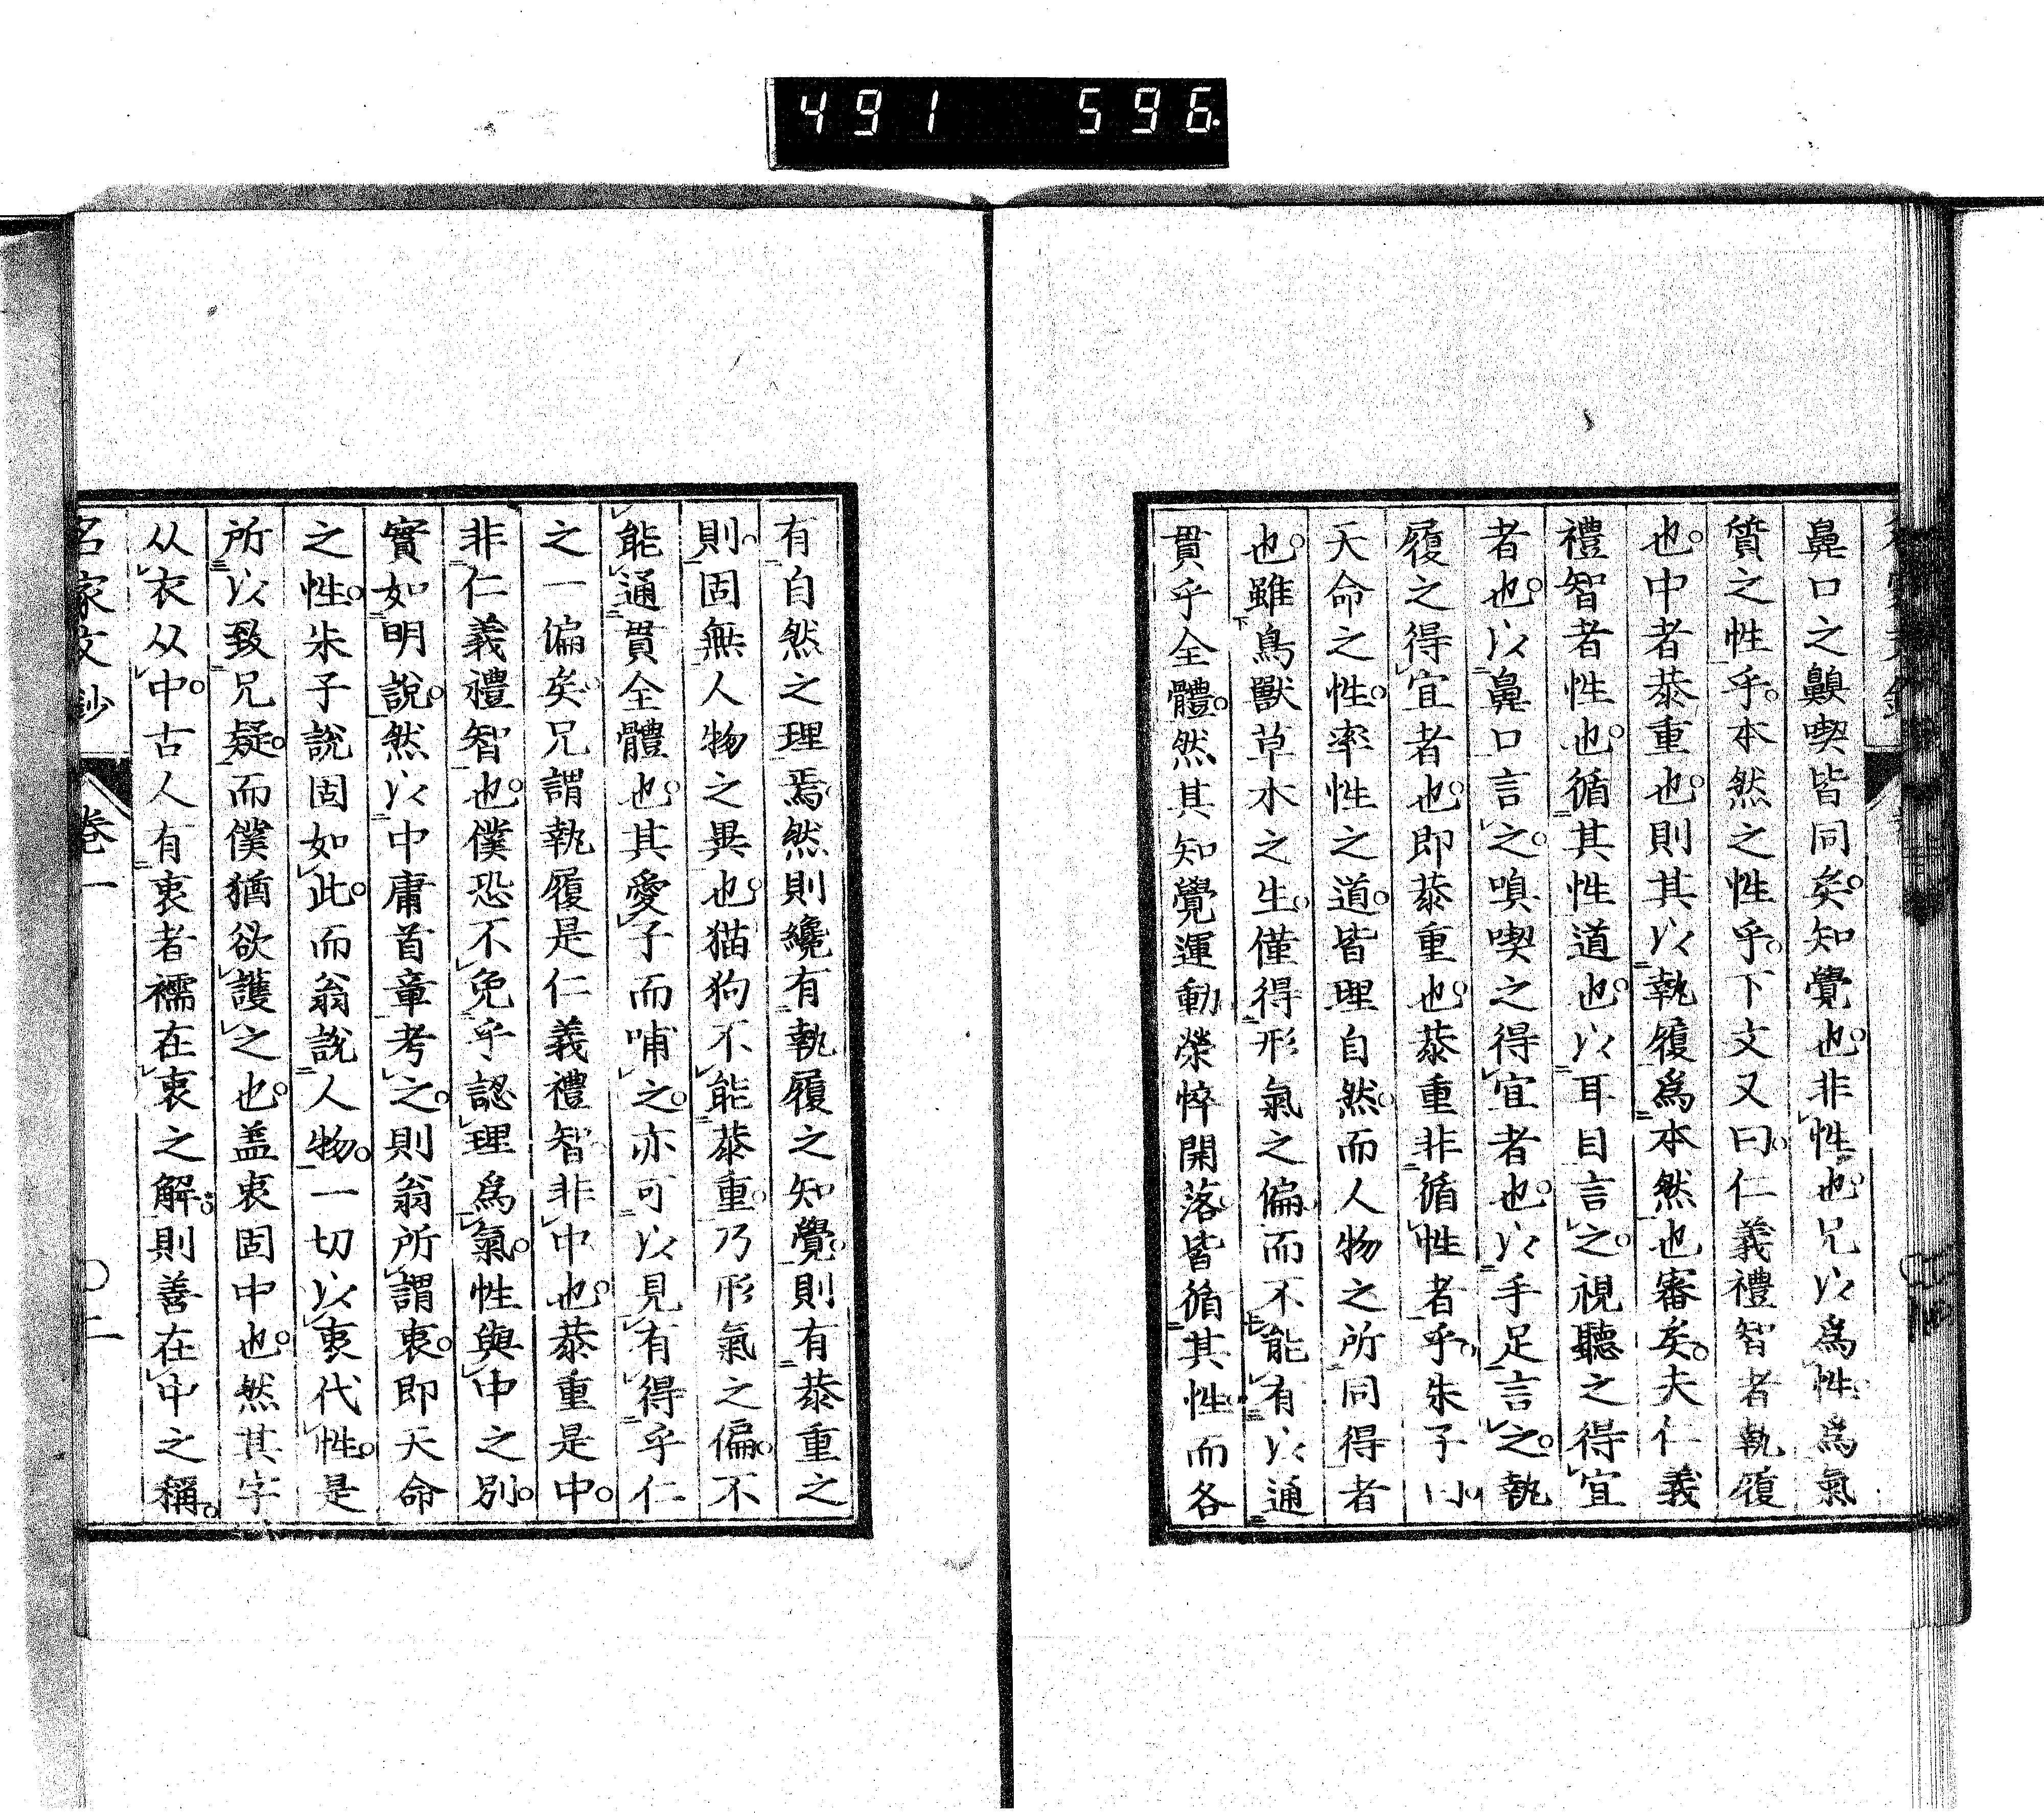 491 596
鼻口之齅喫皆同矣知覺也非性也兄以為性為氣
質之性乎本然之性乎下文又曰仁義禮智者執履
也中者㳟重也則其以執履為本然也審矣夫仁義
禮智者性也循其性道也以耳目言之視聽之得宜
者也以鼻口言之嗅喫之得宜者也以手足言之執
履之得宜者也即㳟重也㳟重非循性者乎朱子曰
天命之性率性之道皆理自然而人物之所同得者
也雖鳥獸草木之生僅得形氣之偏而不能有以通
貫乎全體然其知覺運動榮悴開落皆循其性而各
有自然之理焉然則纔有執履之知覺則有㳟重之
則固無人物之異也猫狗不能㳟重乃形氣之偏不
能通貫全體也其愛子而哺之亦可以見有得乎仁
之一偏矣兄謂執履是仁義禮智非中也㳟重是中
非仁義禮智也僕恐不免乎認理為氣性與中之別
實如明說然以中庸首章考之則翁所謂衷即天命
之性朱子說固如此而翁說人物一切以衷代性是
所以致兄疑而僕猶欲護之也盖衷固中也然其字
从衣从中古人有衷者襦在衷之解則善在中之稱
名家文鈔 卷一 〇二